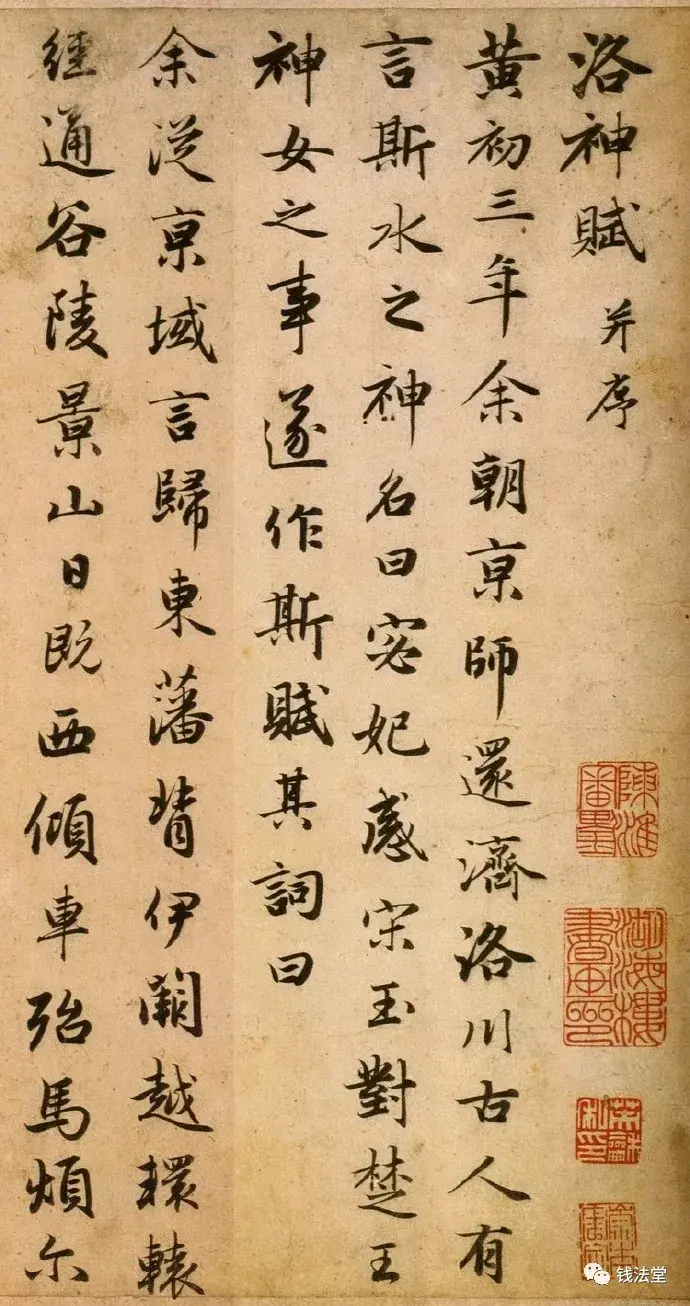 洛神賦 并序
黄初三年余朝亰師還濟洛川古人有
言斯水之神名曰宓妃感宋玉對楚王
神女之事遂作斯賦其詞曰
余従亰域言歸東藩背伊闕越轘轅
經通谷陵景山日既西傾車殆馬煩尔
钱法堂